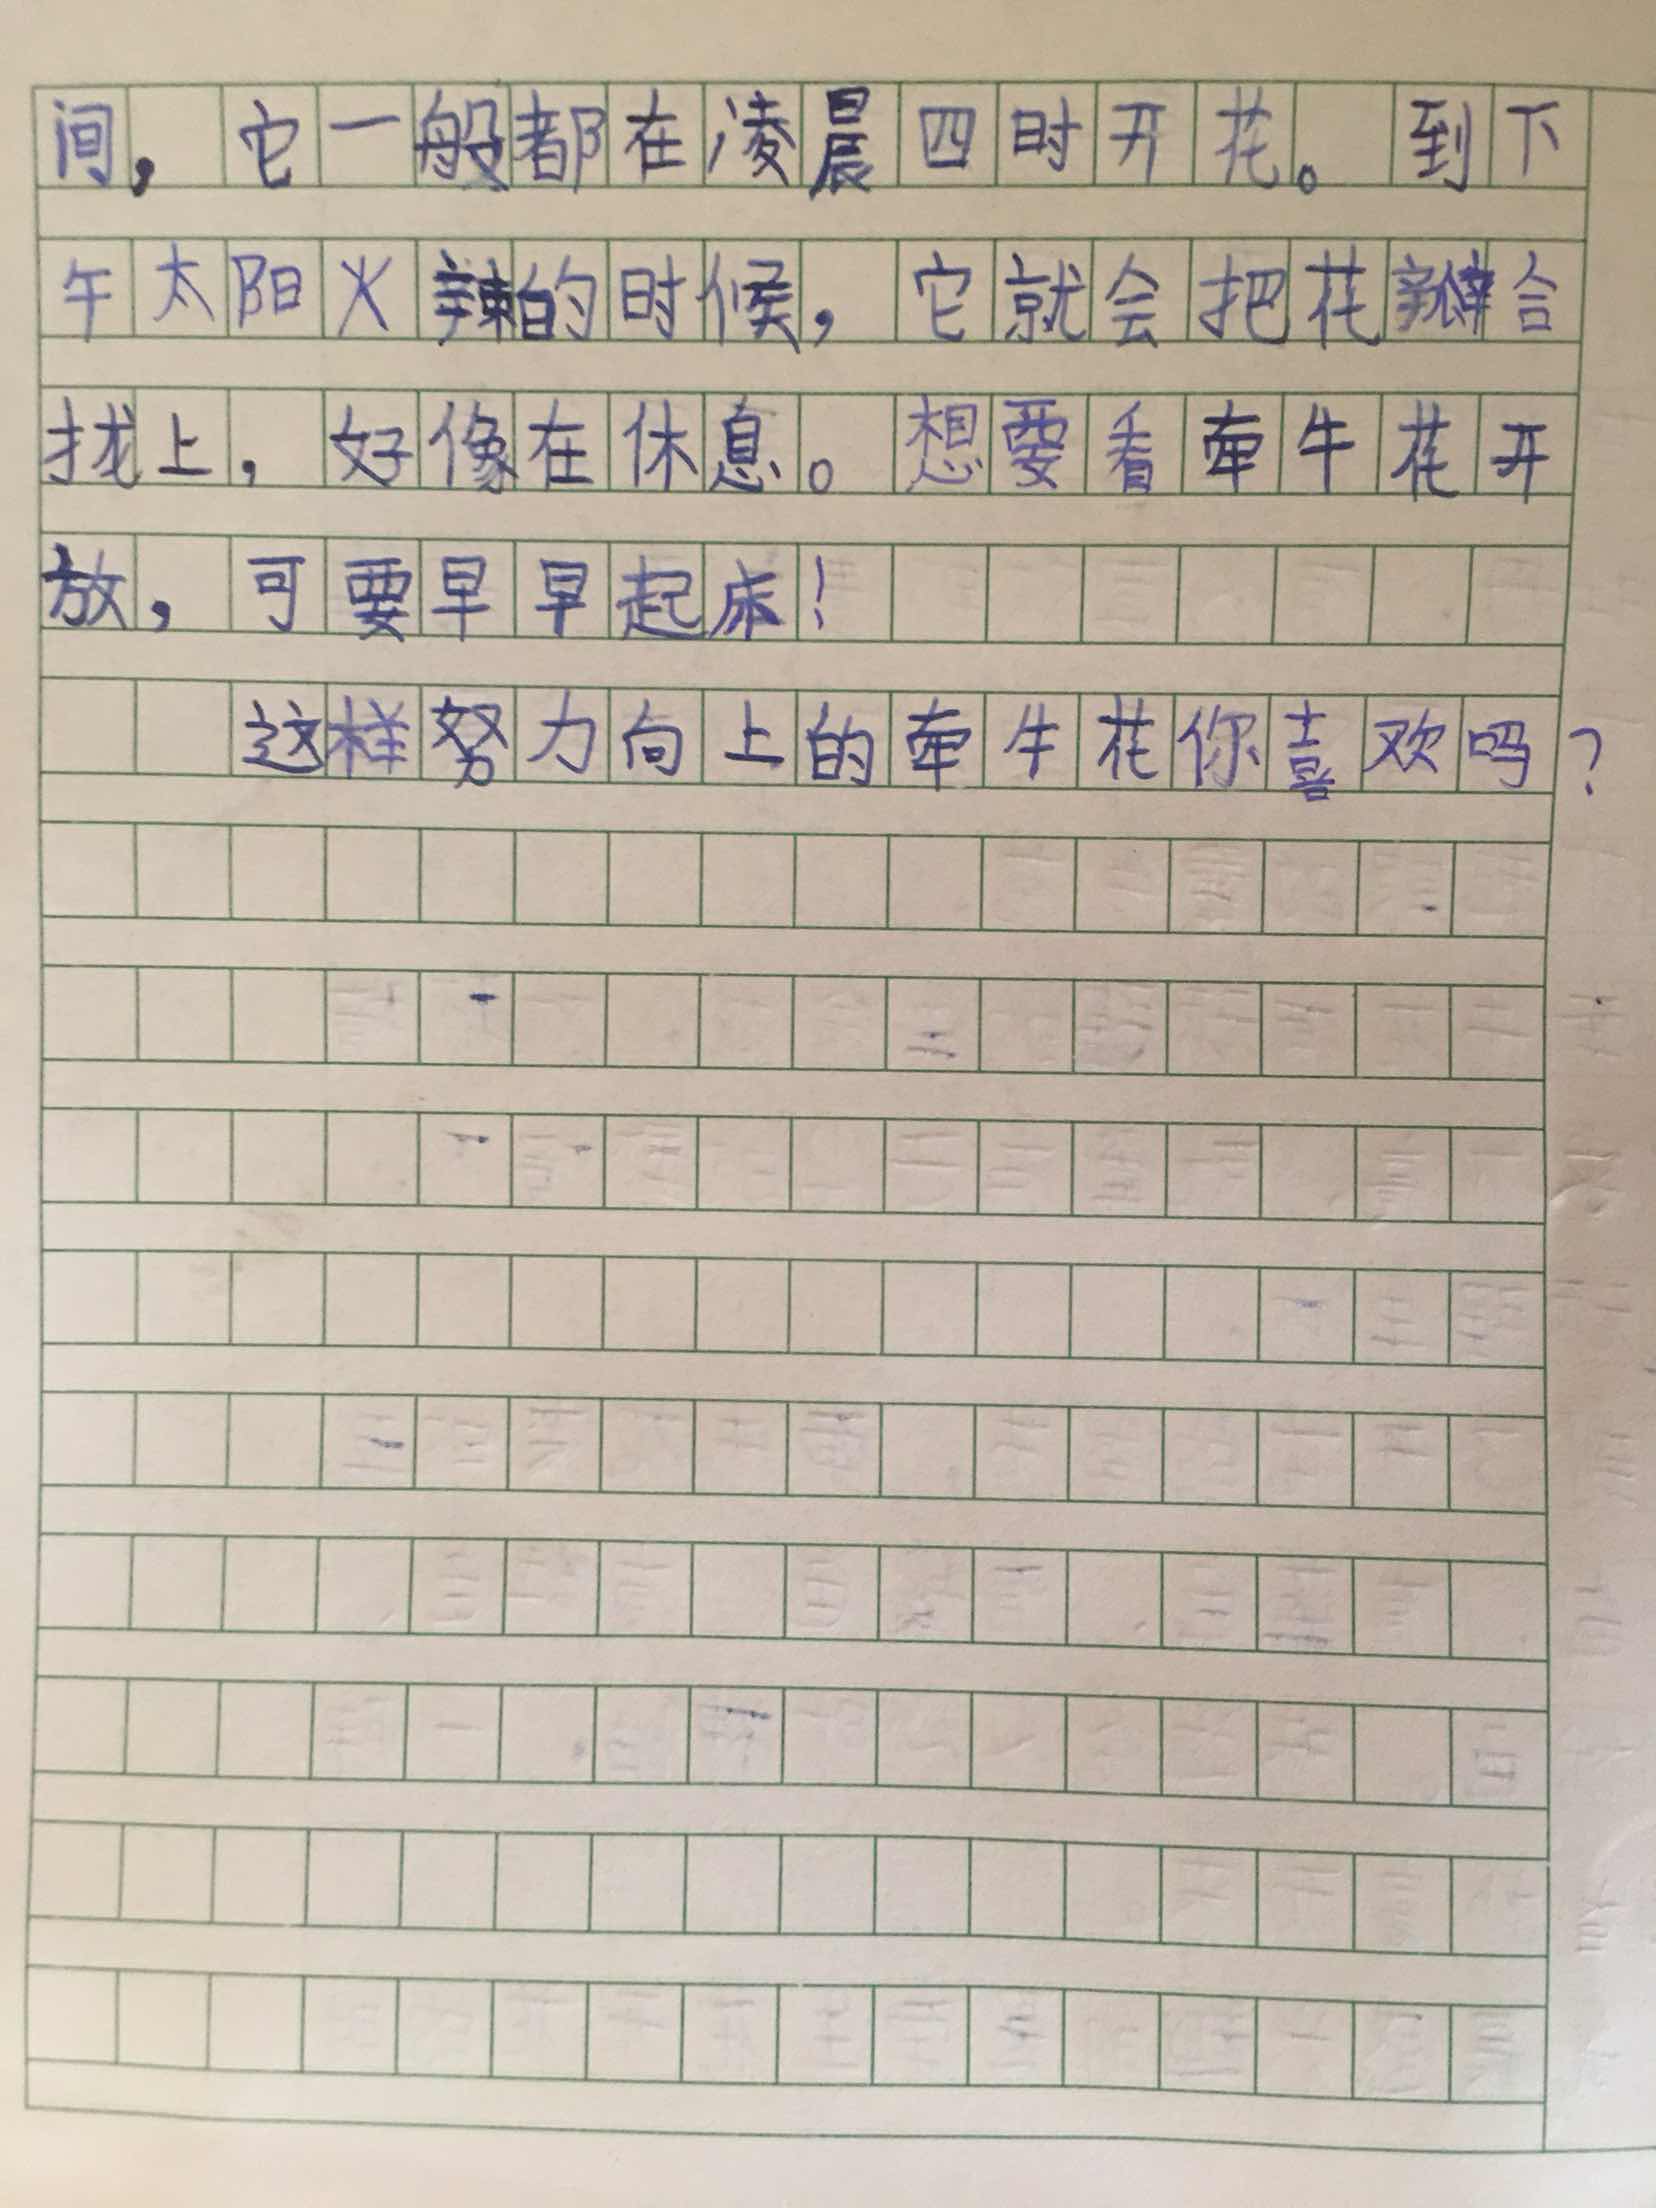 间，它一般都在凌晨四时开花。到下
午太阳火辣的时候，它就会把花瓣合
拢上，好像在休息。想要看牵牛花开
放，可要早早起床！
这样努力向上的牵牛花你喜欢吗？